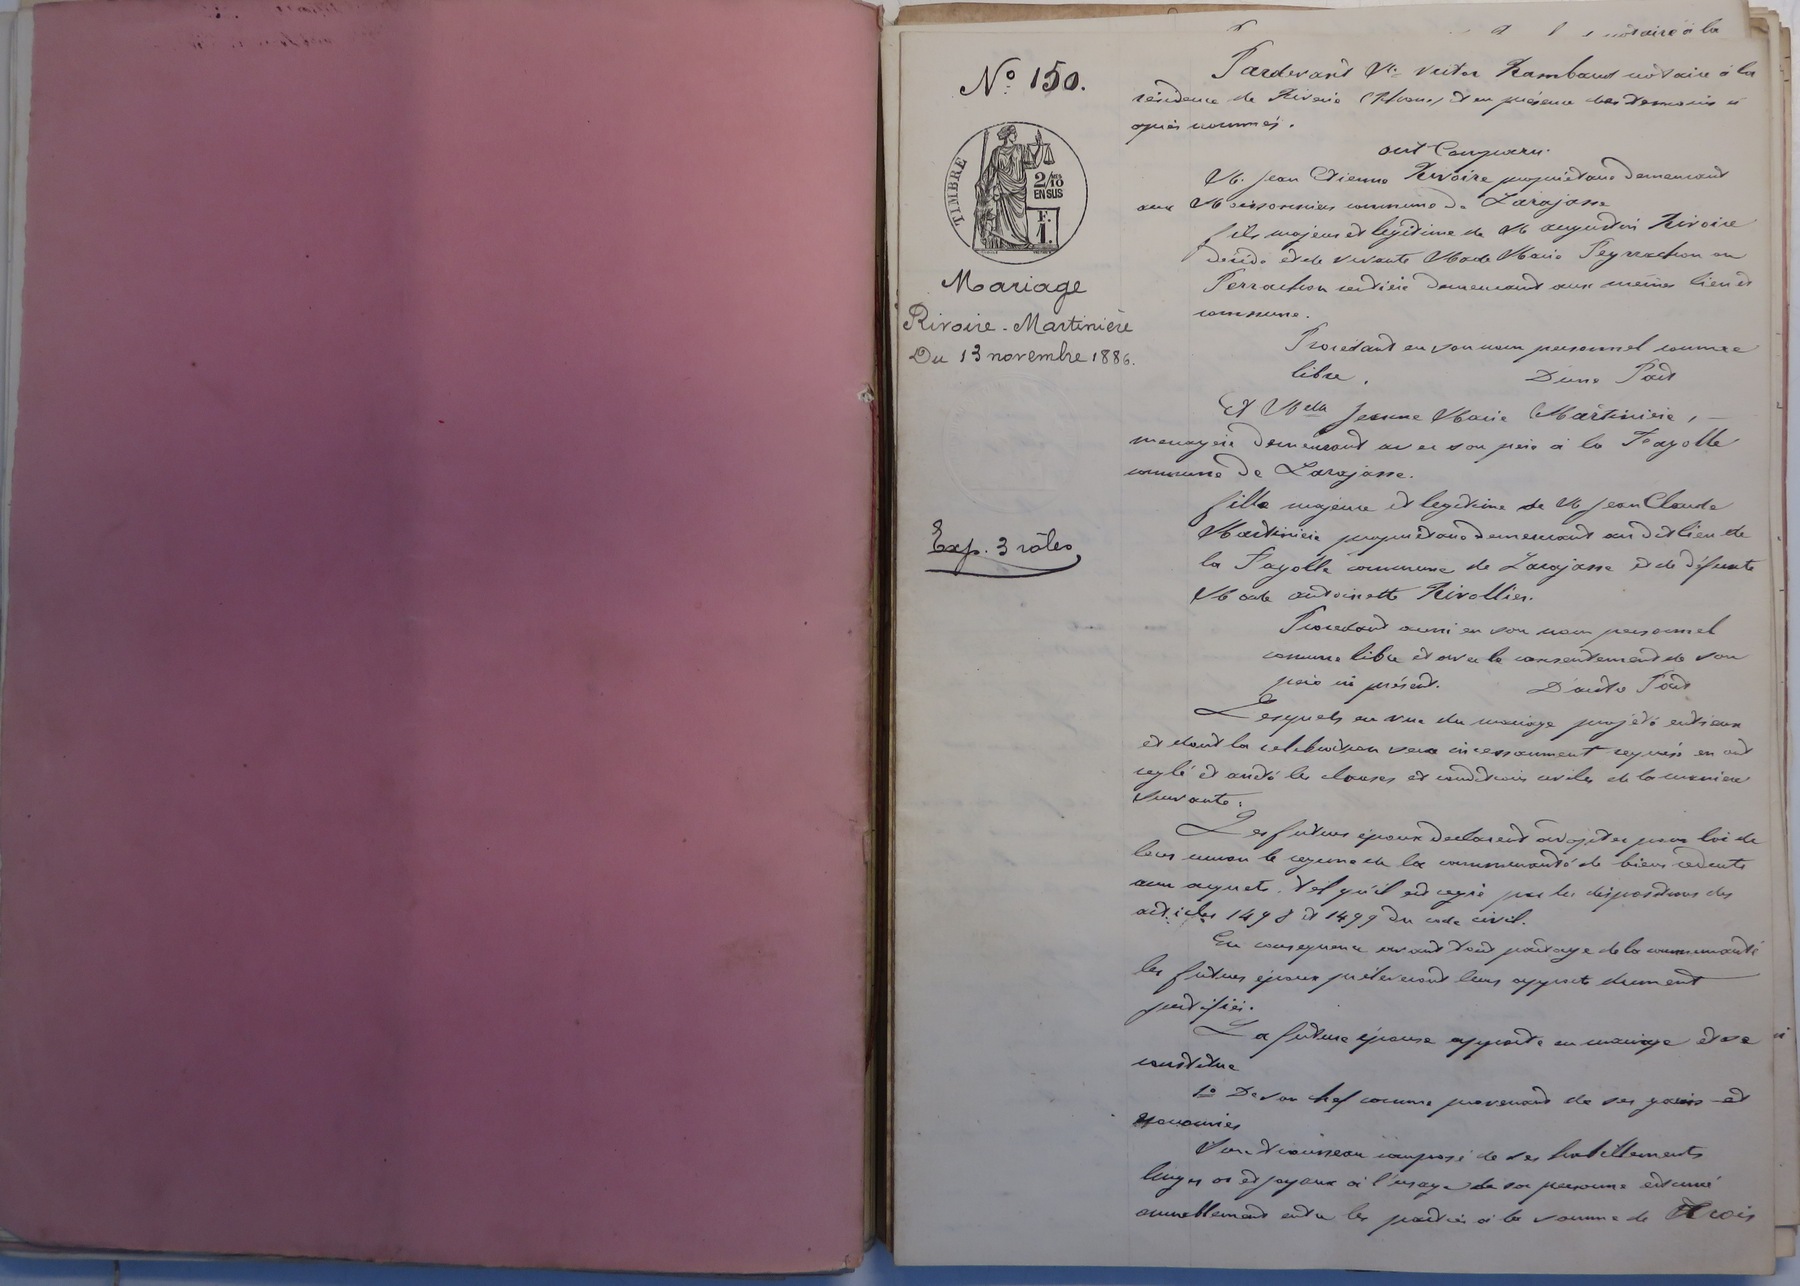 notaire à la
N° 150.
TIMBRE
2/10
EN SUS
F.
1.
Mariage
Rivoire - Martinière
Du 13 novembre 1886.
Exp. 3 rôles
Pardevant Me Victor Rambaud notaire à la
résidence de Riverie (Rhône) et en présence des témoins ci
après nommés.
ont Comparu.
M. Jean Etienne Rivoire propriétaire demeurant
aux commune de Larajasse
fils majeur et légitime de M Augustin Rivoire
décédé et de vivante Made Marie Peyrachon ou
Perrachon rentière demeurant aux mêmes lieu et
commune.
Procédant en son nom personnel comme
libre. D'une Part
Et Melle Jeanne Marie Martinière,
menagère demeurant avec son père à la Fayolle
commune de Larajasse.
fille majeure et legitime de M Jean Claude
Martinière propriétaire demeurant au dit lieu de
la Fayolle commune de Larajasse et de défunte
Made Antoinette Rivollier.
Procedant aussi en son nom personnel
comme libre et avec le consentement de son
père ici présent. D'autre Part
Lesquels en vue du mariage projeté entr'eux
et dont la celebration sera incessamment requise en ont
reglé et arrêté les clauses et conditions civiles de la manière
suivante:
Les futurs époux declarent adopter pour loi de
leur union le regime de la communauté de biens reduite
aux acquets. tel qu'il est regie par les dispositions des
articles 1498 et 1499 du code civil.
En consequence avant tout partage de la communauté
les futurs époux préleveront leurs apports dument
justifiés.
La future épouse apporte en mariage et se
constitue
1° De son chef comme provenant de ses gains et
économies
Son trousseau composé de ses habillements
linges or et joyaux à l'usage de sa personne estimé
annuellement entre les parties à la somme de Trois